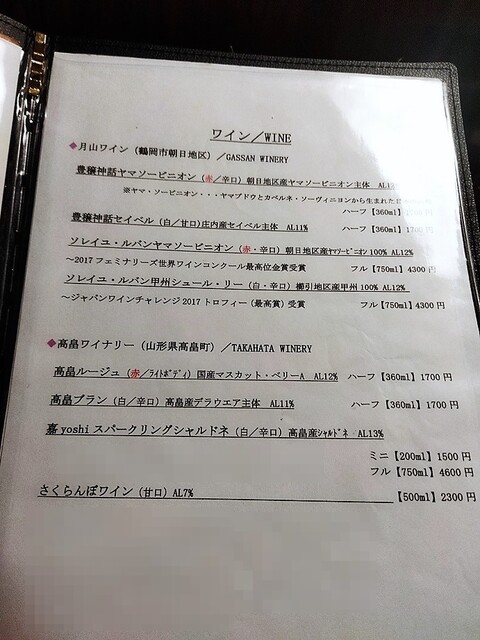 ワイン／WINE
◆月山ワイン（鶴岡市朝日地区）／GASSAN WINERY
豊穣神話ヤマソービニオン（赤/辛口）朝日地区産ヤマソービニオン主体
※ヤマ・ソービニオン・・・ヤマブドウとカベルネ・ソーヴィニヨンから生まれた
ハーフ【360ml】
豊穣神話セイベル（白／甘口）庄内産セイベル主体 AL11% ハーフ【360ml】1700円
ソレイユ・ルバンヤマソービニオン（赤・辛口）朝日地区産ヤマソービニオン100% AL12%
～2017フェミナリーズ世界ワインコンクール最高位金賞受賞 フル【750ml】4300円
ソレイユ・ルバン甲州シュール・リー（白・辛口）櫛引地区産甲州100% AL12%
～ジャパンワインチャレンジ2017トロフィー(最高賞)受賞 フル【750ml】4300円
◆高畠ワイナリー（山形県高畠町）／TAKAHATA WINERY
高畠ルージュ（赤/ライトボディ）国産マスカット・ベリーA AL12% ハーフ【360ml】1700円
高畠ブラン（白／辛口）高畠産デラウエア主体 AL11% ハーフ【360ml】1700円
嘉yoshiスパークリングシャルドネ（白／辛口）高畠産シャルドネ AL13%
ミニ【200ml】1500円
フル【750ml】4600円
さくらんぼワイン（甘口）AL7% 【500ml】2300円